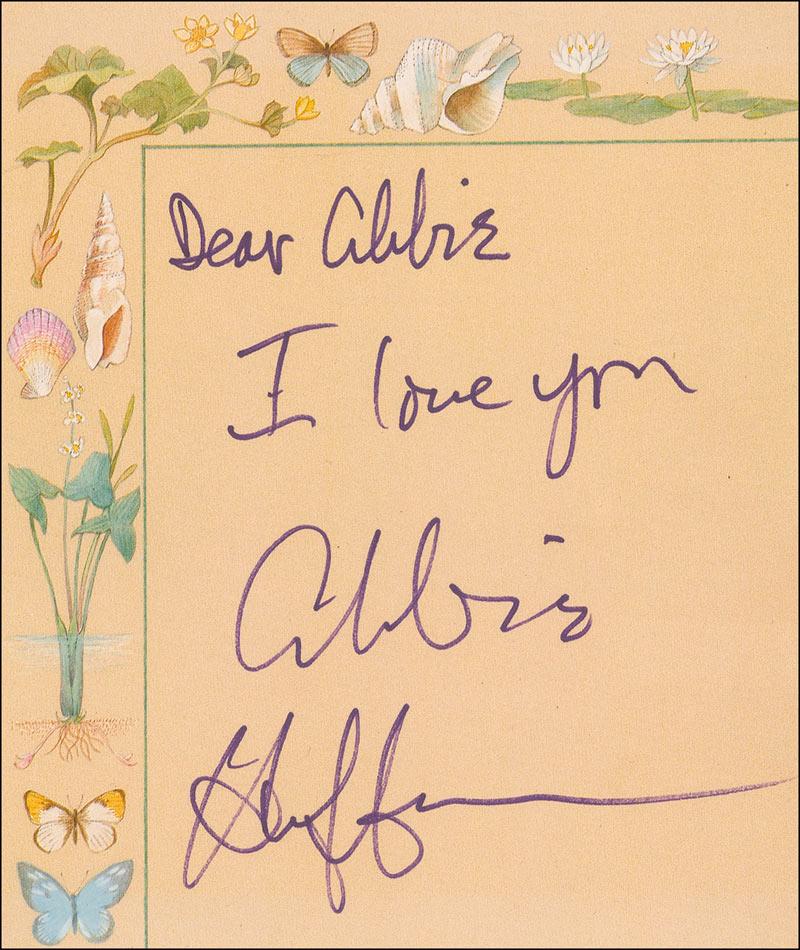 Dear Abbie
I love you
Abbie
Hoffman